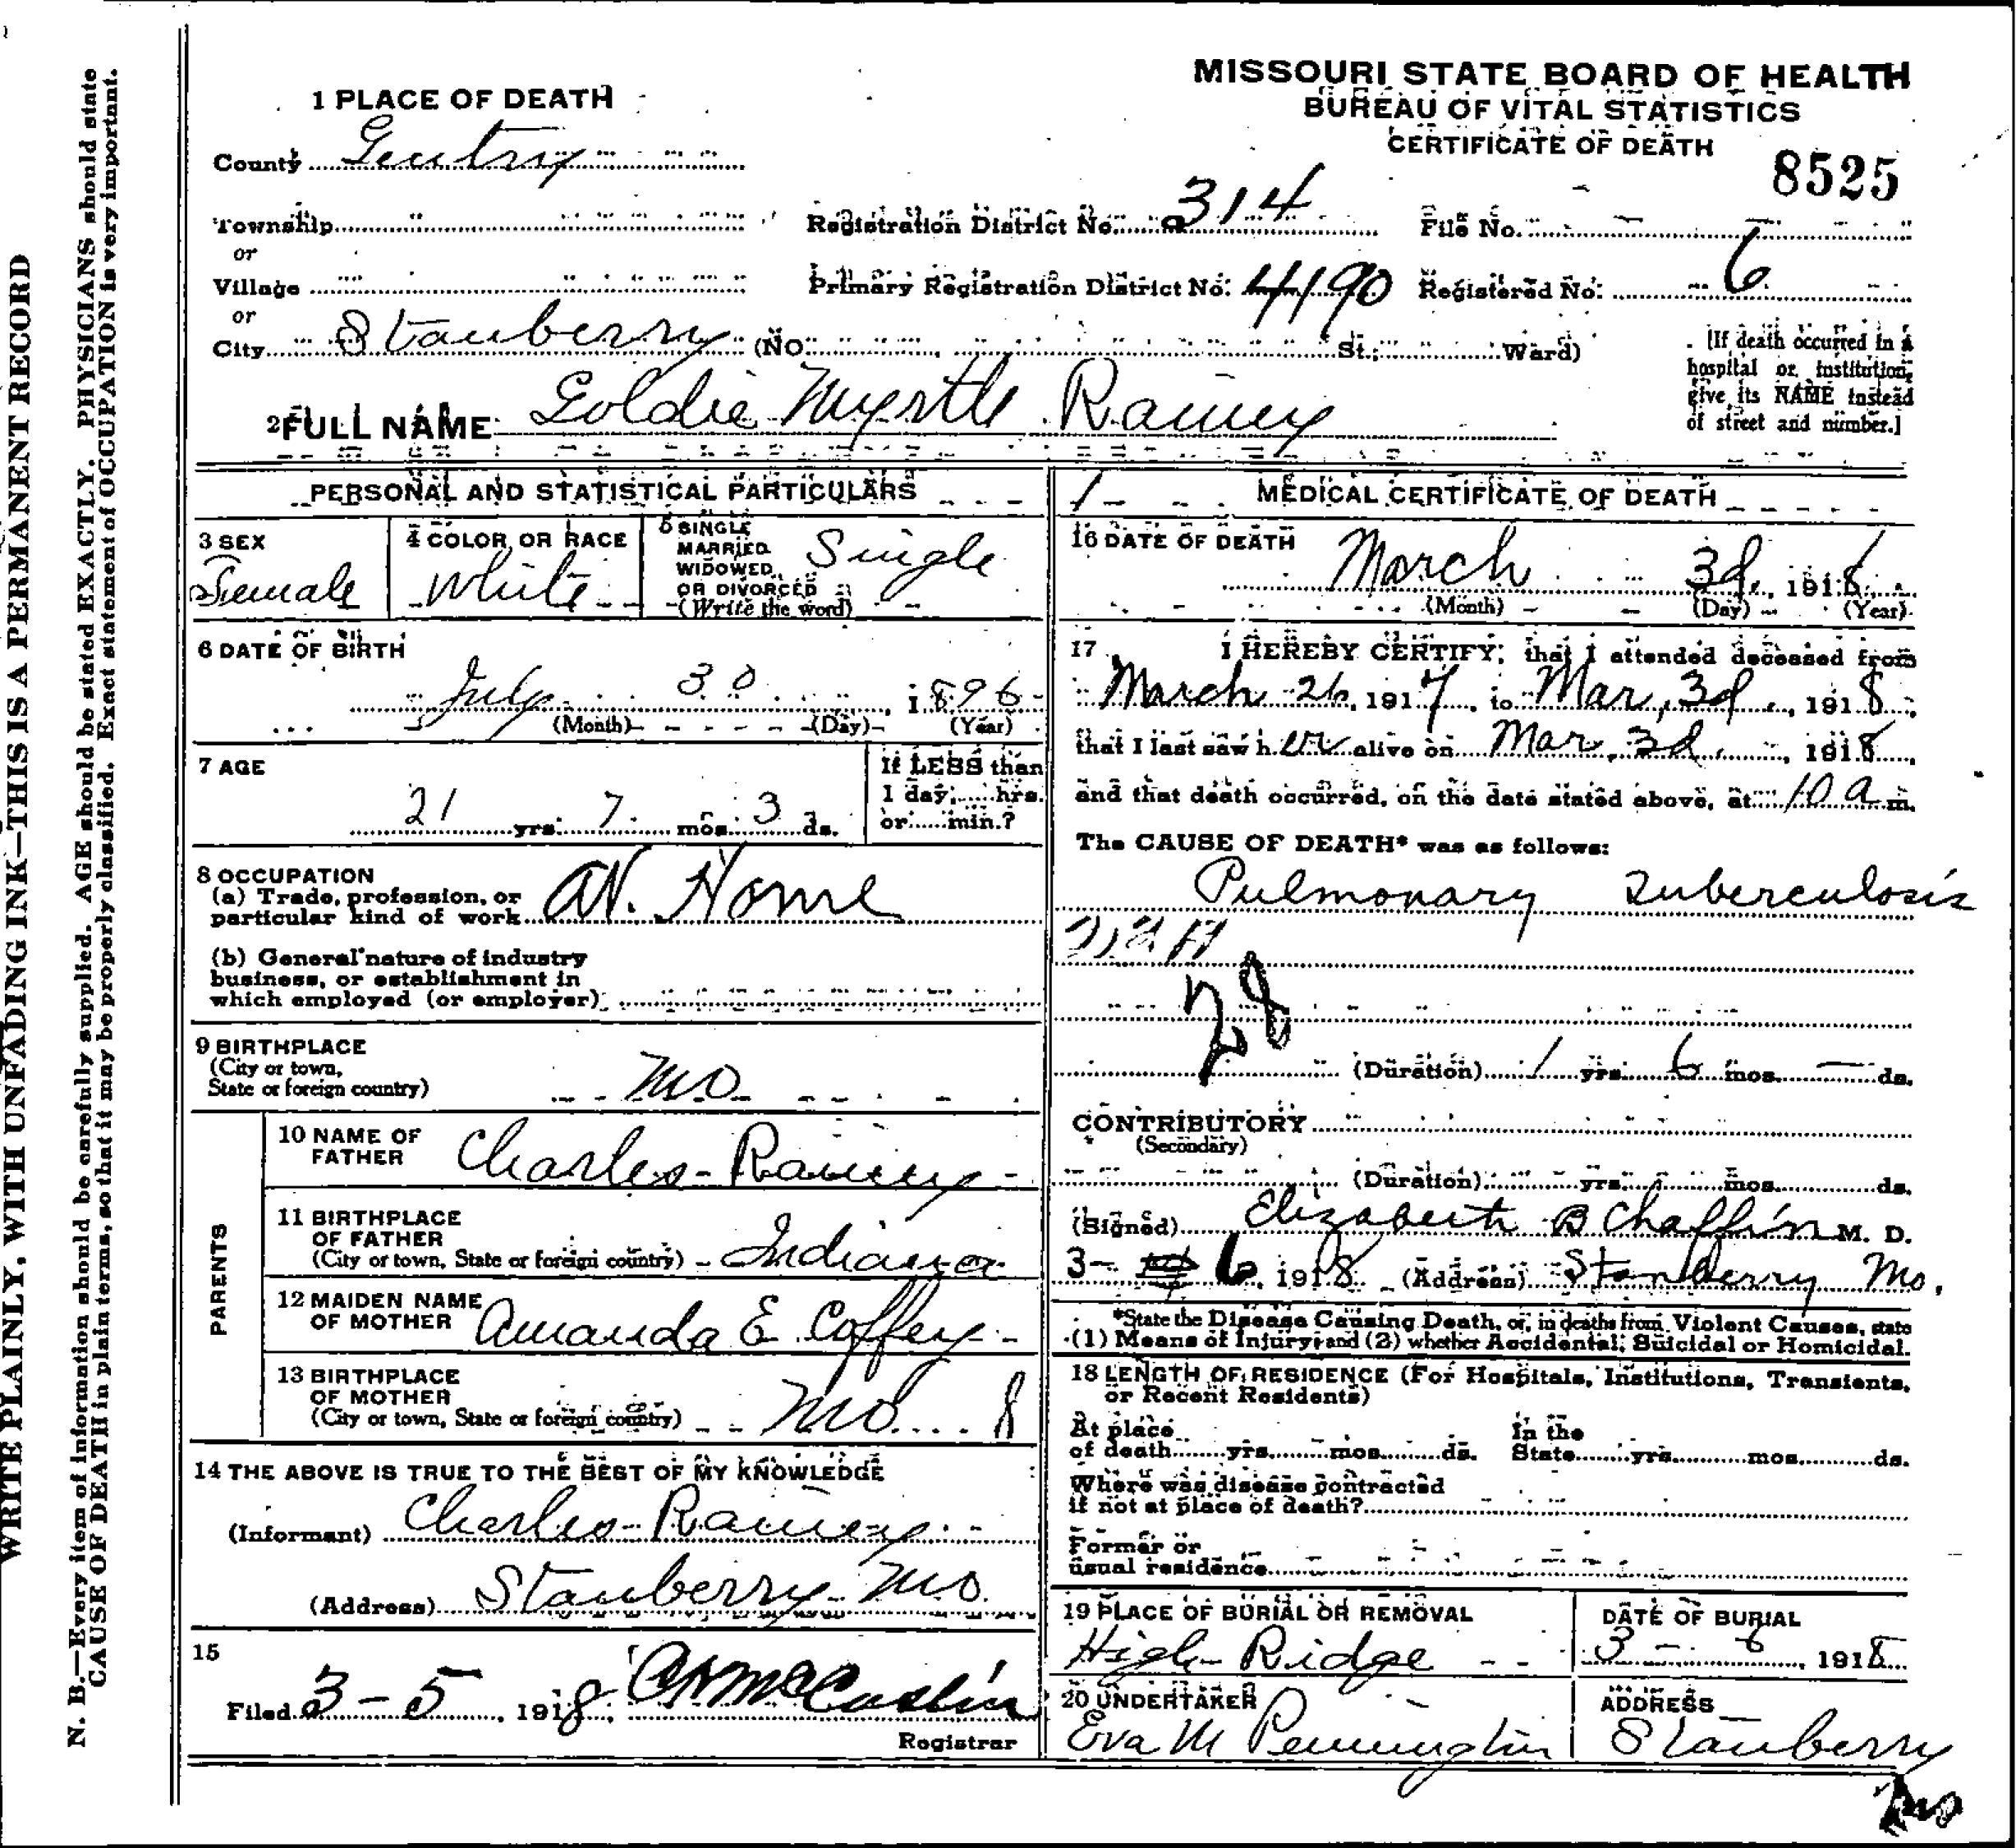 MISSOURI STATE BOARD OF HEALTH
BUREAU OF VITAL STATISTICS
CERTIFICATE OF DEATH
8525
1 PLACE OF DEATH
County Gentry
Township
or
Village
or
City Stanberry (NO. St.; Ward)
Registration District No. 314
File No.
Primary Registration District No. 4190
Registered No. 6
[If death occurred in a
hospital or institution,
give its NAME instead
of street and number.]
2 FULL NAME Goldie Myrtle Rainey
PERSONAL AND STATISTICAL PARTICULARS
3 SEX
Female
4 COLOR OR RACE
White
5 SINGLE
MARRIED
WIDOWED
OR DIVORCED
(Write the word)
Single
6 DATE OF BIRTH
July 30, 1896
(Month) (Day) (Year)
7 AGE
21 yrs. 7 mos. 3 ds.
If LESS than
1 day, hrs.
or min.?
8 OCCUPATION
(a) Trade, profession, or
particular kind of work At Home
(b) General nature of industry
business, or establishment in
which employed (or employer)
9 BIRTHPLACE
(City or town,
State or foreign country)
Mo
PARENTS
10 NAME OF
FATHER
Charles Rainey
11 BIRTHPLACE
OF FATHER
(City or town, State or foreign country) Indiana
12 MAIDEN NAME
OF MOTHER
Amanda E Coffey
13 BIRTHPLACE
OF MOTHER
(City or town, State or foreign country) Mo
14 THE ABOVE IS TRUE TO THE BEST OF MY KNOWLEDGE
(Informant) Charles Rainey
(Address) Stanberry Mo.
15
Filed 3-5, 1918
Registrar
MEDICAL CERTIFICATE OF DEATH
16 DATE OF DEATH
March 3d, 1918
(Month) (Day) (Year)
17 I HEREBY CERTIFY, that I attended deceased from
March 26, 1917, to Mar, 3d, 1918,
that I last saw her alive on Mar, 3d, 1918,
and that death occurred, on the date stated above, at 10 a m.
The CAUSE OF DEATH* was as follows:
Pulmonary Tuberculosis
28
(Duration) 1 yrs. 6 mos. — ds.
CONTRIBUTORY
(Secondary)
(Duration) yrs. mos. ds.
(Signed) Elizabeth B Chaffin M. D.
3- 6, 1918 (Address) Stanberry Mo.
*State the Disease Causing Death, or, in deaths from Violent Causes, state
(1) Means of Injury; and (2) whether Accidental, Suicidal or Homicidal.
18 LENGTH OF RESIDENCE (For Hospitals, Institutions, Transients,
or Recent Residents)
At place
of death yrs. mos. ds.
In the
State yrs. mos. ds.
Where was disease contracted
if not at place of death?
Former or
usual residence
19 PLACE OF BURIAL OR REMOVAL
High Ridge
DATE OF BURIAL
3-6 1918
20 UNDERTAKER
Eva M Pennington
ADDRESS
Stanberry
Mo
WRITE PLAINLY, WITH UNFADING INK—THIS IS A PERMANENT RECORD
N. B.—Every item of information should be carefully supplied. AGE should be stated EXACTLY. PHYSICIANS should state
CAUSE OF DEATH in plain terms, so that it may be properly classified. Exact statement of OCCUPATION is very important.